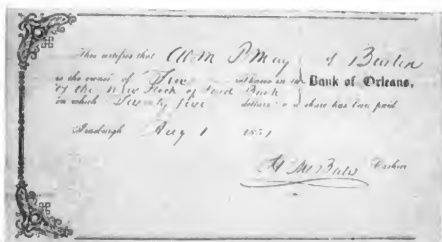 This certifies that Wm P May of Barton
is the owner of shares in the Bank of Orleans,
of the new Stock of said Bank
on which Twenty five dollars on a share has been paid
Irasburgh Aug 1 18 1
H M Bates Cashier